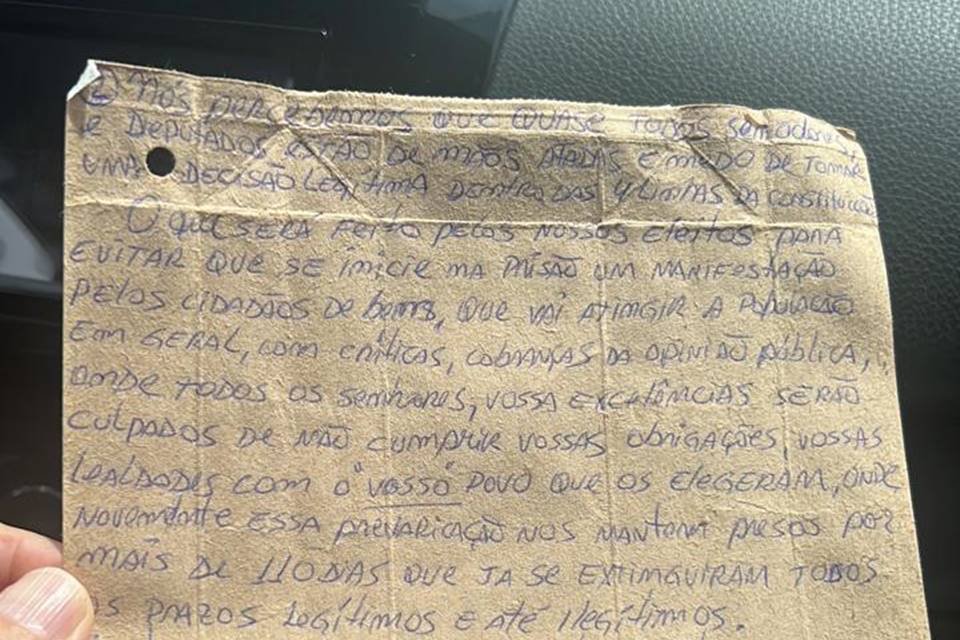 2) Nós percebemos que quase todos senadores,
e Deputados estão de mãos atadas e medo de tomar
uma decisão legítima dentro das 4 linhas da Constituição
O que será feito pelos nossos eleitos para
evitar que se inicie na prisão um manifestação
pelos cidadãos de bem, que vai atingir a população
em geral, com críticas, cobranças da opinião pública,
onde todos os senhores, vossa excelências serão
culpados de não cumprir vossas obrigações vossas
lealdades com o "vosso" povo que os elegeram, onde
novamente essa prevaricação nos mantem presos por
mais de 110 dias que ja se extinguiram todos
os prazos legítimos e até ilegítimos.